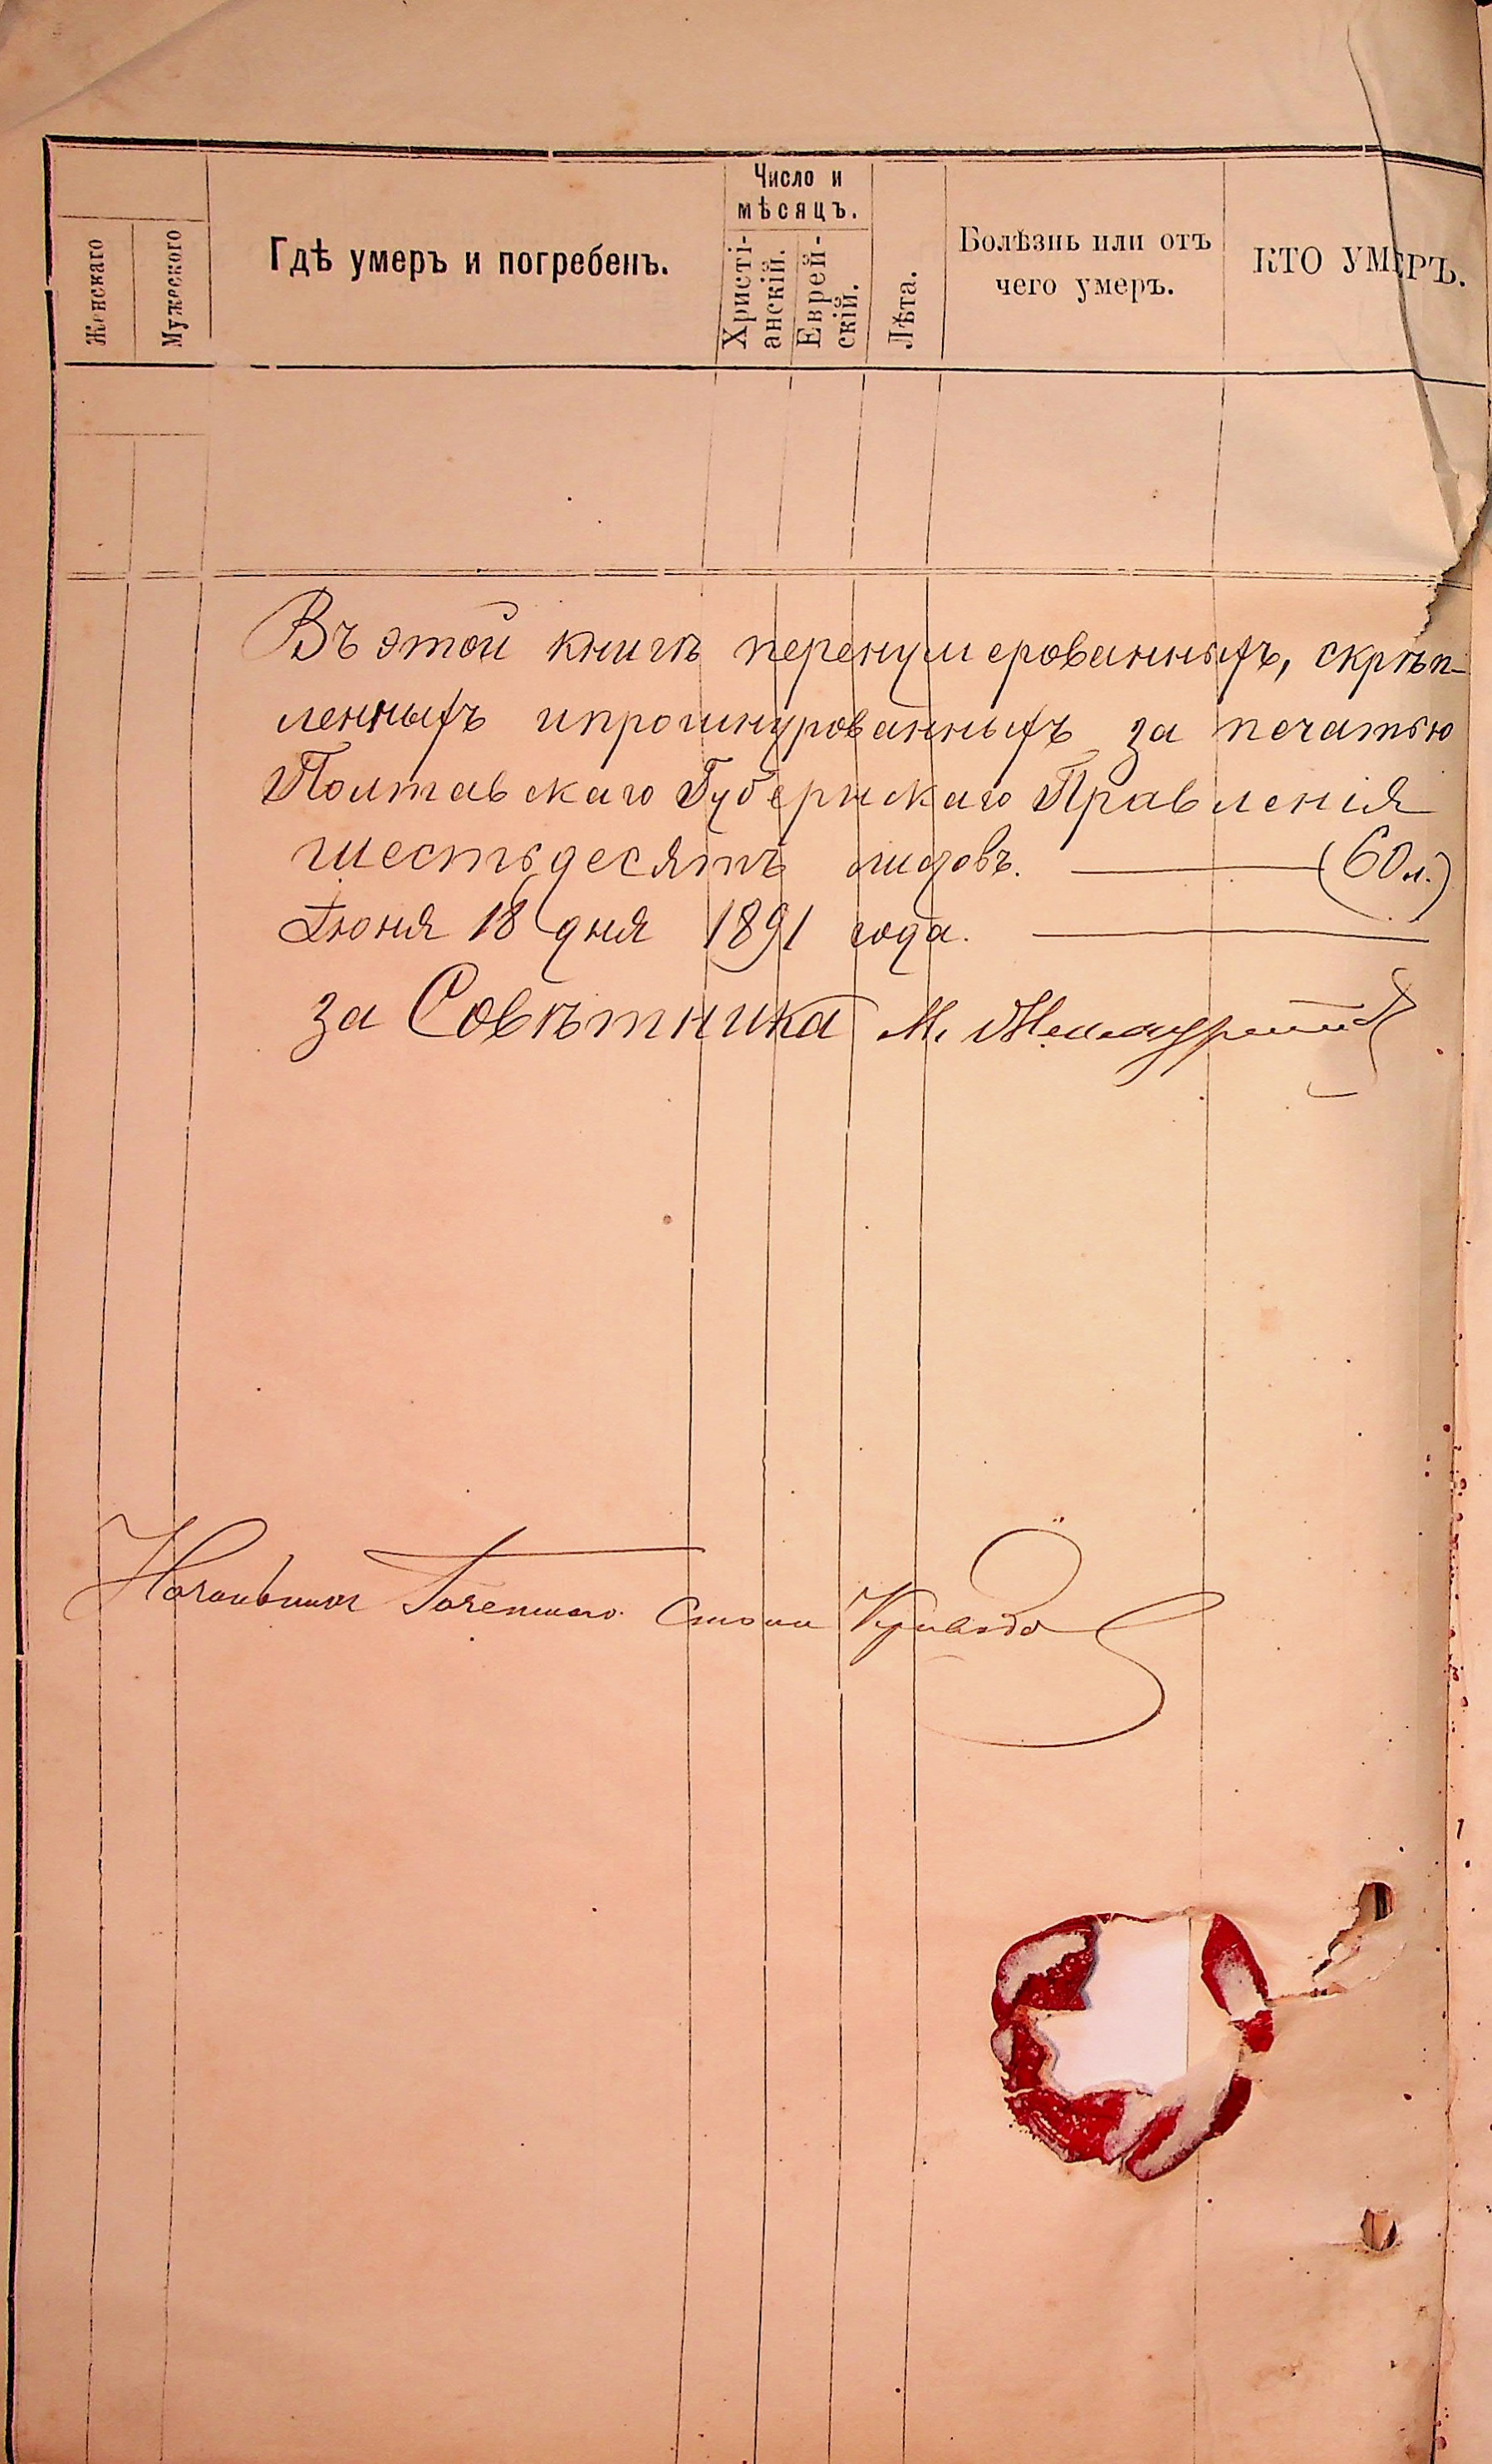 Женскаго
Мужескаго
Гдѣ умеръ и погребенъ.
Число и
мѣсяцъ.
Христі-
анскій.
Еврей-
скій.
Лѣта.
Болѣзнь или отъ
чего умеръ.
КТО УМЕРЪ.
Въ этой книгѣ перенумерованныхъ, скрѣп-
ленныхъ и прошнурованныхъ за печатью
Полтавскаго Губернскаго Правленія
шестьдесятъ листовъ. (60 л.)
Іюня 18 дня 1891 года.
за Совѣтника М.
Начальникъ Стола